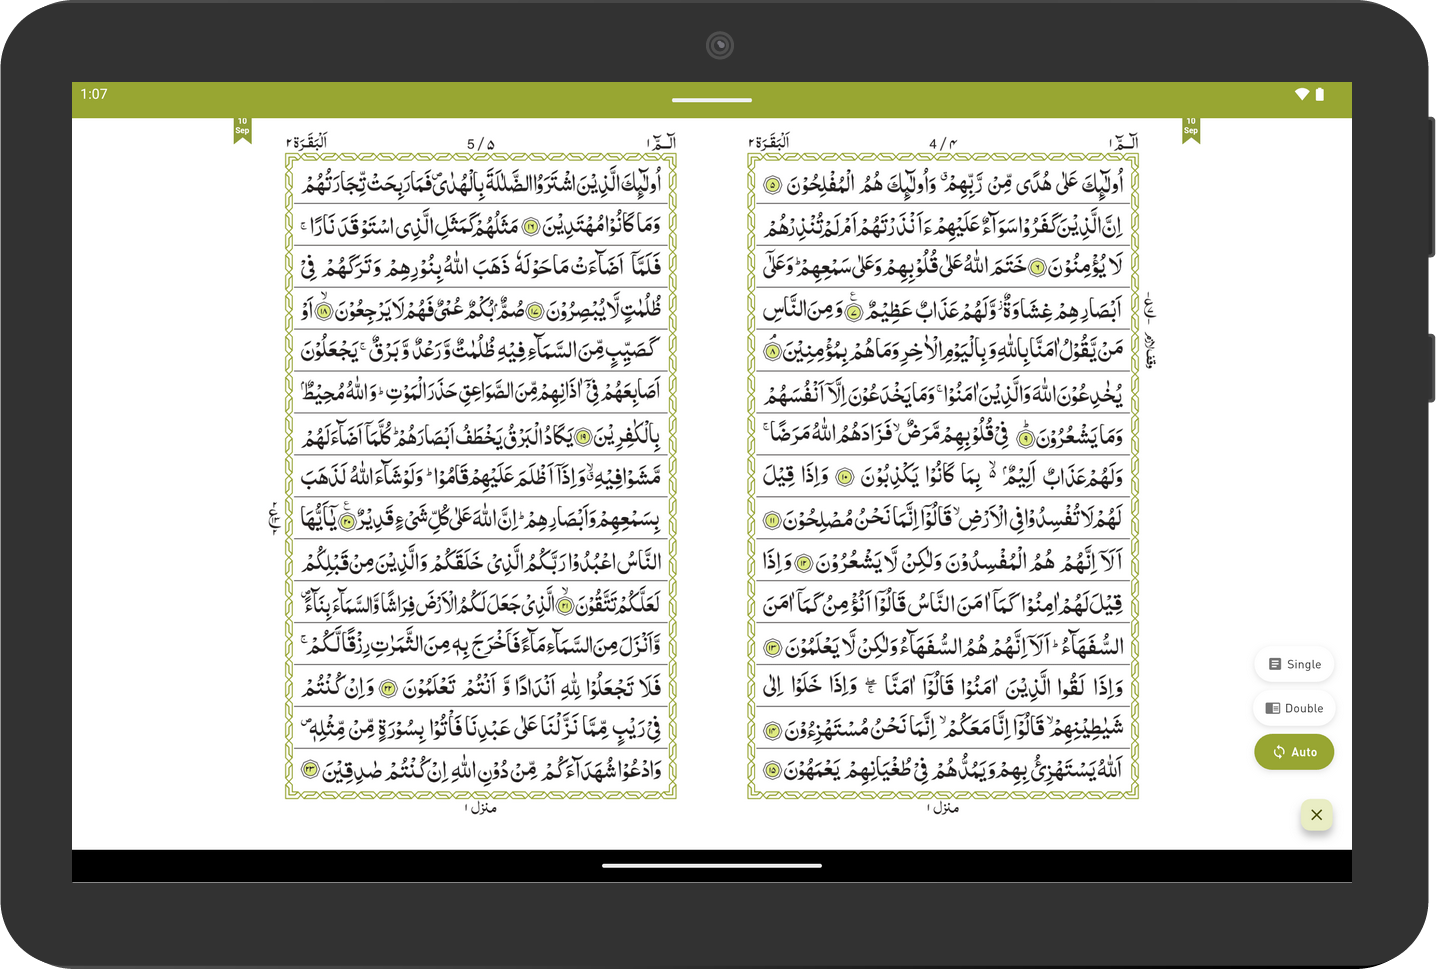 1:07
10
Sep
اَلْبَقَرَة ٢
4 / ۴
الٓمّٓ ١
اُولٰٓئِكَ عَلٰى هُدًى مِّنْ رَّبِّهِمْ ۗ وَاُولٰٓئِكَ هُمُ الْمُفْلِحُوْنَ ۵
اِنَّ الَّذِيْنَ كَفَرُوْا سَوَآءٌ عَلَيْهِمْ ءَاَنْذَرْتَهُمْ اَمْ لَمْ تُنْذِرْهُمْ
لَا يُؤْمِنُوْنَ ۶ خَتَمَ اللّٰهُ عَلٰى قُلُوْبِهِمْ وَعَلٰى سَمْعِهِمْ ؕ وَعَلٰٓى
اَبْصَارِهِمْ غِشَاوَةٌ ؗ وَّلَهُمْ عَذَابٌ عَظِيْمٌ ۷ وَمِنَ النَّاسِ
مَنْ يَّقُوْلُ اٰمَنَّا بِاللّٰهِ وَبِالْيَوْمِ الْاٰخِرِ وَمَا هُمْ بِمُؤْمِنِيْنَ ۘ ۸
يُخٰدِعُوْنَ اللّٰهَ وَالَّذِيْنَ اٰمَنُوْا ۚ وَمَا يَخْدَعُوْنَ اِلَّآ اَنْفُسَهُمْ
وَمَا يَشْعُرُوْنَ ؕ ۹ فِيْ قُلُوْبِهِمْ مَّرَضٌ ۙ فَزَادَهُمُ اللّٰهُ مَرَضًا ۚ
وَلَهُمْ عَذَابٌ اَلِيْمٌ ۢ ۙ بِمَا كَانُوْا يَكْذِبُوْنَ ۱۰ وَاِذَا قِيْلَ
لَهُمْ لَا تُفْسِدُوْا فِى الْاَرْضِ ۙ قَالُوْٓا اِنَّمَا نَحْنُ مُصْلِحُوْنَ ۱۱
اَلَآ اِنَّهُمْ هُمُ الْمُفْسِدُوْنَ وَلٰكِنْ لَّا يَشْعُرُوْنَ ۱۲ وَاِذَا
قِيْلَ لَهُمْ اٰمِنُوْا كَمَآ اٰمَنَ النَّاسُ قَالُوْٓا اَنُؤْمِنُ كَمَآ اٰمَنَ
السُّفَهَآءُ ؕ اَلَآ اِنَّهُمْ هُمُ السُّفَهَآءُ وَلٰكِنْ لَّا يَعْلَمُوْنَ ۱۳
وَاِذَا لَقُوا الَّذِيْنَ اٰمَنُوْا قَالُوْٓا اٰمَنَّا ۖۚ وَاِذَا خَلَوْا اِلٰى
شَيٰطِيْنِهِمْ ۙ قَالُوْٓا اِنَّا مَعَكُمْ ۙ اِنَّمَا نَحْنُ مُسْتَهْزِءُوْنَ ۱۴
اَللّٰهُ يَسْتَهْزِئُ بِهِمْ وَيَمُدُّهُمْ فِيْ طُغْيَانِهِمْ يَعْمَهُوْنَ ۱۵
منزل ١
10
Sep
اَلْبَقَرَة ٢
5 / ۵
الٓمّٓ ١
اُولٰٓئِكَ الَّذِيْنَ اشْتَرَوُا الضَّلٰلَةَ بِالْهُدٰى ۪ فَمَا رَبِحَتْ تِّجَارَتُهُمْ
وَمَا كَانُوْا مُهْتَدِيْنَ ۱۶ مَثَلُهُمْ كَمَثَلِ الَّذِى اسْتَوْقَدَ نَارًا ۚ
فَلَمَّآ اَضَآءَتْ مَا حَوْلَهٗ ذَهَبَ اللّٰهُ بِنُوْرِهِمْ وَتَرَكَهُمْ فِيْ
ظُلُمٰتٍ لَّا يُبْصِرُوْنَ ۱۷ صُمٌّۢ بُكْمٌ عُمْيٌ فَهُمْ لَا يَرْجِعُوْنَ ۙ ۱۸ اَوْ
كَصَيِّبٍ مِّنَ السَّمَآءِ فِيْهِ ظُلُمٰتٌ وَّرَعْدٌ وَّبَرْقٌ ۚ يَجْعَلُوْنَ
اَصَابِعَهُمْ فِيْٓ اٰذَانِهِمْ مِّنَ الصَّوَاعِقِ حَذَرَ الْمَوْتِ ؕ وَاللّٰهُ مُحِيْطٌۢ
بِالْكٰفِرِيْنَ ۱۹ يَكَادُ الْبَرْقُ يَخْطَفُ اَبْصَارَهُمْ ؕ كُلَّمَآ اَضَآءَ لَهُمْ
مَّشَوْا فِيْهِ ۙۗ وَاِذَآ اَظْلَمَ عَلَيْهِمْ قَامُوْا ؕ وَلَوْ شَآءَ اللّٰهُ لَذَهَبَ
بِسَمْعِهِمْ وَاَبْصَارِهِمْ ؕ اِنَّ اللّٰهَ عَلٰى كُلِّ شَيْءٍ قَدِيْرٌ ۲۰ يٰٓاَيُّهَا
النَّاسُ اعْبُدُوْا رَبَّكُمُ الَّذِيْ خَلَقَكُمْ وَالَّذِيْنَ مِنْ قَبْلِكُمْ
لَعَلَّكُمْ تَتَّقُوْنَ ۙ ۲۱ الَّذِيْ جَعَلَ لَكُمُ الْاَرْضَ فِرَاشًا وَّالسَّمَآءَ بِنَآءً ۪
وَّاَنْزَلَ مِنَ السَّمَآءِ مَآءً فَاَخْرَجَ بِهٖ مِنَ الثَّمَرٰتِ رِزْقًا لَّكُمْ ۚ
فَلَا تَجْعَلُوْا لِلّٰهِ اَنْدَادًا وَّ اَنْتُمْ تَعْلَمُوْنَ ۲۲ وَاِنْ كُنْتُمْ
فِيْ رَيْبٍ مِّمَّا نَزَّلْنَا عَلٰى عَبْدِنَا فَاْتُوْا بِسُوْرَةٍ مِّنْ مِّثْلِهٖ ۪
وَادْعُوْا شُهَدَآءَكُمْ مِّنْ دُوْنِ اللّٰهِ اِنْ كُنْتُمْ صٰدِقِيْنَ ۲۳
منزل ١
Single
Double
Auto